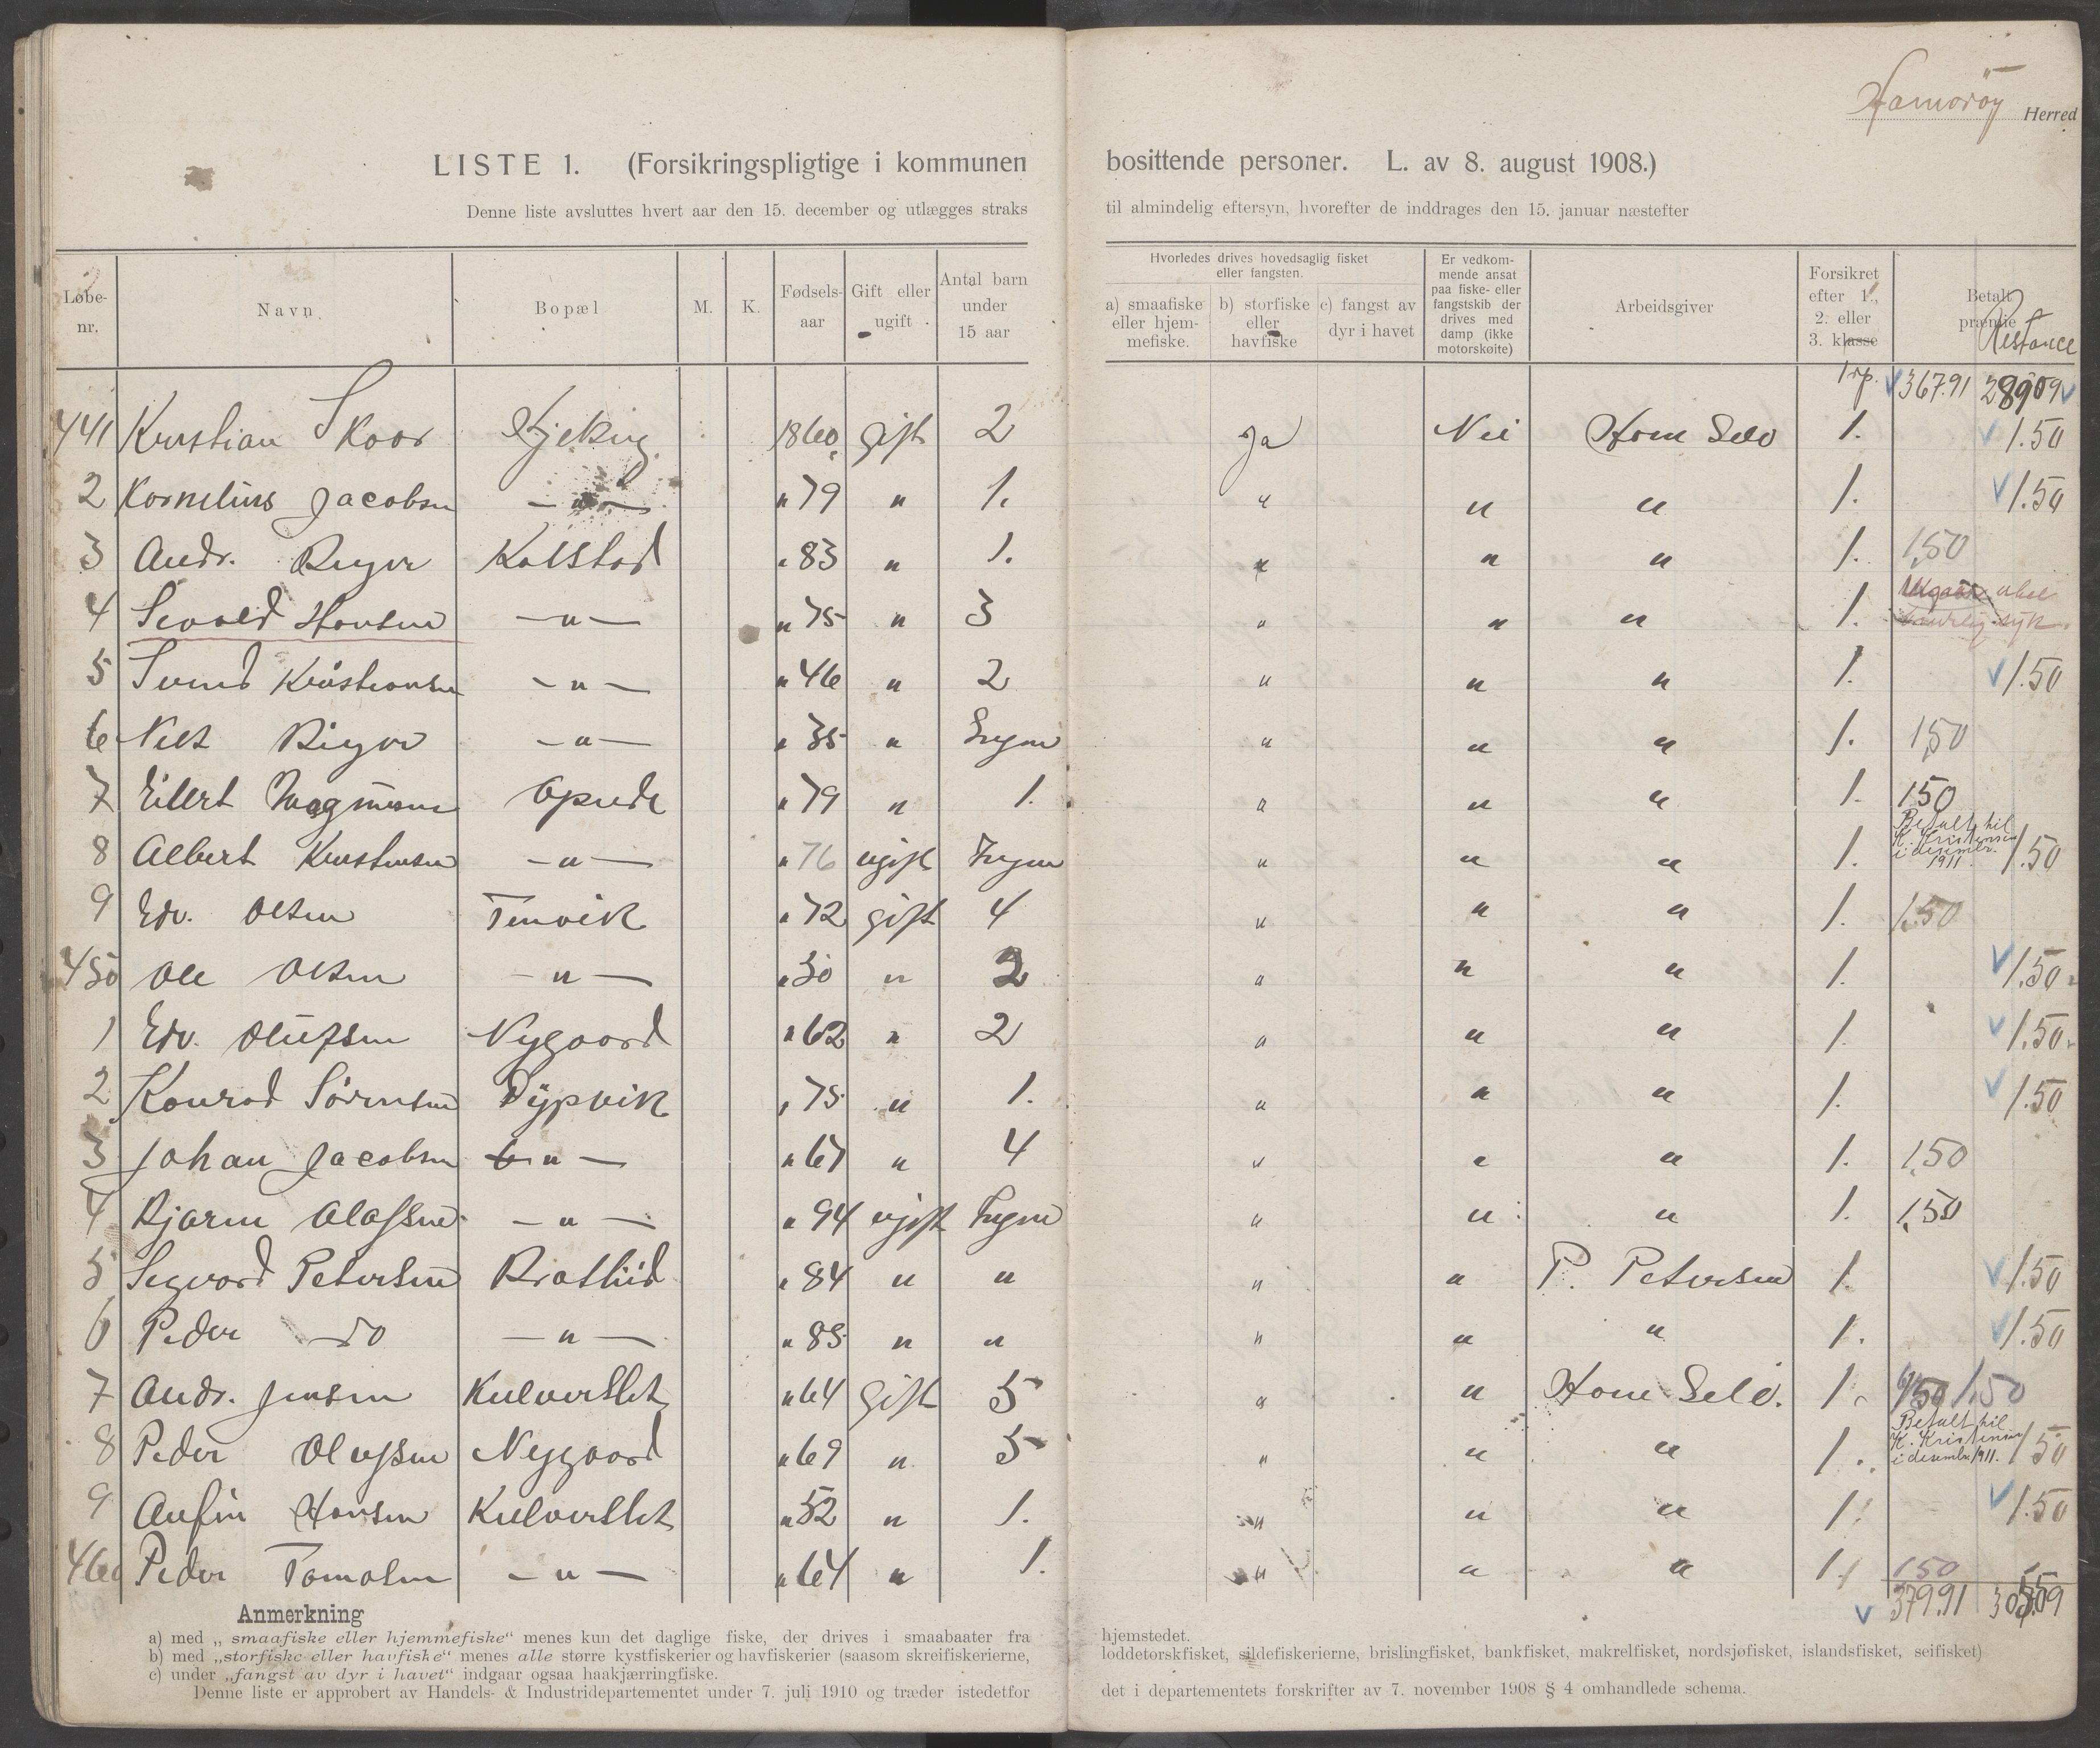 Hamorøy Herred
LISTE 1. (Forsikringspligtige i kommunen bosittende personer. L. av 8. august 1908.)
Denne liste avsluttes hvert aar den 15. december og utlægges straks til almindelig eftersyn, hvorefter de inddrages den 15. januar næstefter
Løbe-nr. Navn Bopæl M. K. Fødsels-aar Gift eller ugift Antal barn under 15 aar Hvorledes drives hovedsaglig fisket eller fangsten. a) smaafiske eller hjem-mefiske. b) storfiske eller havfiske c) fangst av dyr i havet Er vedkom-mende ansat paa fiske- eller fangstskib der drives med damp (ikke motorskøite) Arbeidsgiver Forsikret efter 1., 2. eller 3. klasse Betalt præmie Restance
Trp. 367.91 289.09
441 Kristian Skoor 1860 gift 2 Ja Nei Ham Selv 1. 1.50
2 Kornelius Jacobsen —"— " 79 " 1. " " " 1. 1.50
3 Andr. Kolstad " 83 " 1. " " " 1. 1,50
4 Sevald Hansen —"— " 75 " 3 " " " 1.
5 Svend Kristiansen —"— " 46 " 2 " " " 1. 1.50
6 Nils —"— " 35 " Ingen " " " 1. 1,50
7 Eilert Magnusen " 79 " 1. " " " 1. 150
8 Albert Kristensen —"— " 76 ugift Ingen " " " 1. Betalt til K. Kristensen i desembr. 1911. 1.50
9 Edv. Olsen Tenvik " 72 gift 4 " " " 1. 1.50
450 Ole Olsen —"— " 50 " 2 " " " 1. 1.50
1 Edv. Olufsen Nygaard " 62 " 2 " " " 1. 1.50
2 Konrad Sörensen Dypvik " 75 " 1. " " " 1. 1.50
3 Johan Jacobsen "— " 67 " 4 " " " 1. 1,50
4 Bjarne Olafsen —"— " 94 ugift Ingen " " " 1. 1,50
5 Segvard Petersen Bratlid " 84 " " " " P. Petersen 1. 1.50
6 Peder do —"— " 85 " " " " " 1. 1.50
7 Andr. Jensen Kulverslet " 64 gift 5 " " Ham Selv. 1. 1,50
8 Peder Olufsen Nygaard " 69 " 5 " " " 1. Betalt til K. Kristensen i desembr. 1911. 1.50
9 Anfin Hansen Kulverslet " 52 " 1. " " " 1. 1.50
460 Peder Tomasen —"— " 64 " 1. " " " 1. 150
379.91
Anmerkning
a) med „smaafiske eller hjemmefiske" menes kun det daglige fiske, der drives i smaabaater fra hjemstedet.
b) med „storfiske eller havfiske" menes alle større kystfiskerier og havfiskerier (saasom skreifiskerierne, loddetorskfisket, sildefiskerierne, brislingfisket, bankfisket, makrelfisket, nordsjøfisket, islandsfisket, seifisket)
c) under „fangst av dyr i havet" indgaar ogsaa haakjærringfiske.
Denne liste er approbert av Handels- & Industridepartementet under 7. juli 1910 og træder istedetfor det i departementets forskrifter av 7. november 1908 § 4 omhandlede schema.